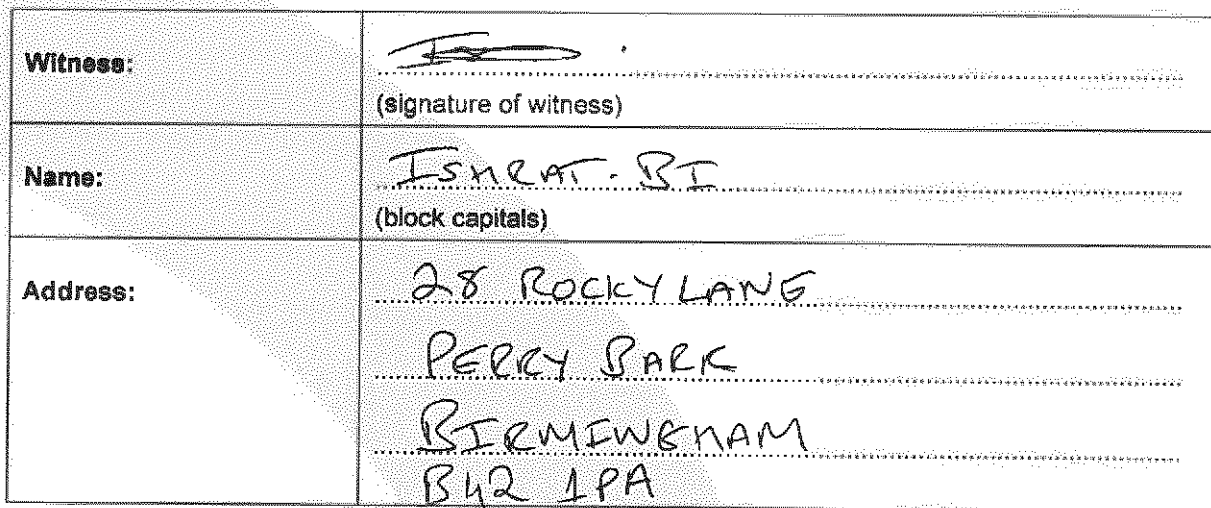 Witness:
(signature of witness)
Name: ISHRAT. BI
(block capitals)
Address: 28 ROCKY LANE
PERRY BARR
BIRMINGHAM
B42 1PA